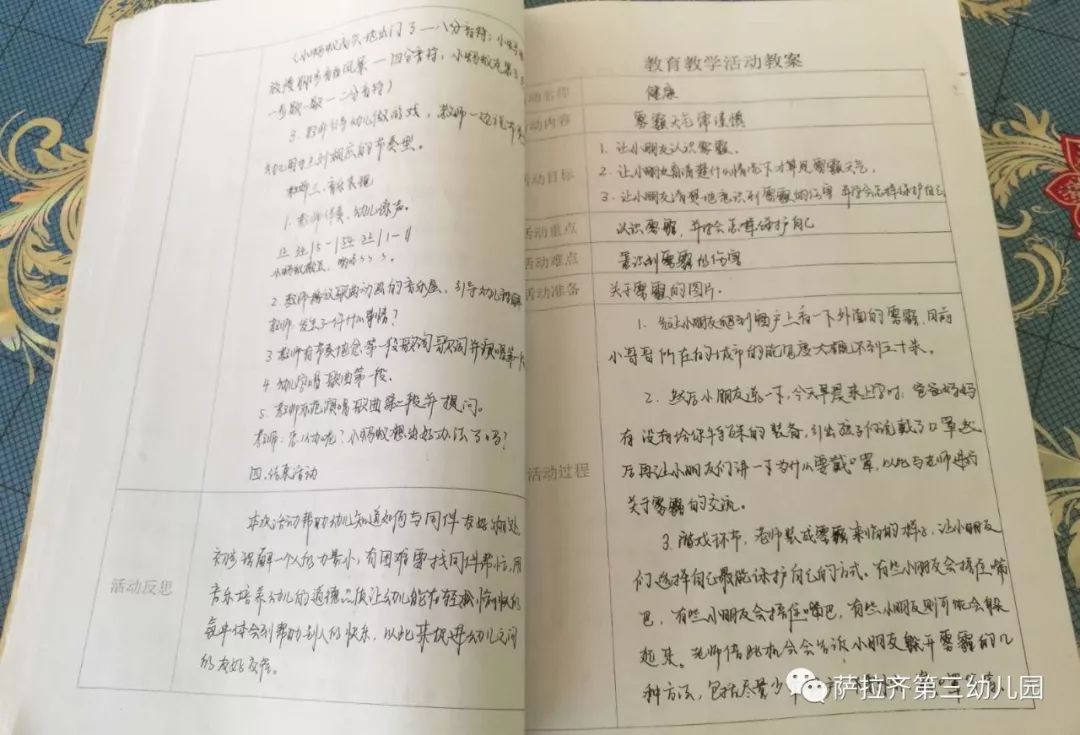 （小蚂蚁高兴地出门了——八分音符；小蚂蚁
放慢脚步看看风景——四分音符；小蚂蚁走累了
一步歇一歇——二分音符）
3. 教师引导幼儿做游戏，教师一边说节奏
幼儿用手上到相应的节奏型。
三、音乐表现
1. 教师伴奏，幼儿
小蚂蚁搬豆，
2. 教师播放歌曲动画的音乐，引导幼儿理解
教师：发生了一件什么事情？
3. 教师有节奏地念第一段歌词并演唱第一
4. 幼儿学唱歌曲第一段。
5. 教师示范演唱歌曲第二段并提问。
教师：怎么办呢？小蚂蚁想出好办法了吗？
四、结束活动
活动反思
本次活动帮助幼儿知道如何与同伴友好相处，
初步理解一个人的力量小，有困难要找同伴帮忙，用
音乐培养幼儿的道德品质让幼儿能在轻松愉快的
气氛中体会到帮助别人的快乐，以此来促进幼儿之间
的友好交往。
教育教学活动教案
活动名称 健康
活动内容 雾霾天气需谨慎
活动目标
1. 让小朋友认识雾霾。
2. 让小朋友弄清楚什么情况下才算是雾霾天气。
3. 让小朋友清楚地意识到雾霾的伤害并学会怎样保护自己
活动重点 认识雾霾，并学会怎样保护自己
活动难点 意识到雾霾的伤害
活动准备 关于雾霾的图片。
活动过程
1. 先让小朋友趴到窗户上看一下外面的雾霾，目前
小哥哥所在的城市的能见度大概不到五十米。
2. 然后小朋友说一下，今天早晨来上学时，爸爸妈妈
有没有给你特殊的装备，引出孩子们说戴了口罩然
后再让小朋友们讲一下为什么要戴口罩，以此与老师进行
关于雾霾的交流。
3. 游戏环节，老师装成雾霾来临的样子，让小朋友
们选择自己最能保护自己的方式。有些小朋友会捂住嘴
巴，有些小朋友会捂住嘴巴，有些小朋友则可能会躲
起来。老师借此机会会告诉小朋友躲开雾霾的几
种方法，包括尽量少
萨拉齐第三幼儿园